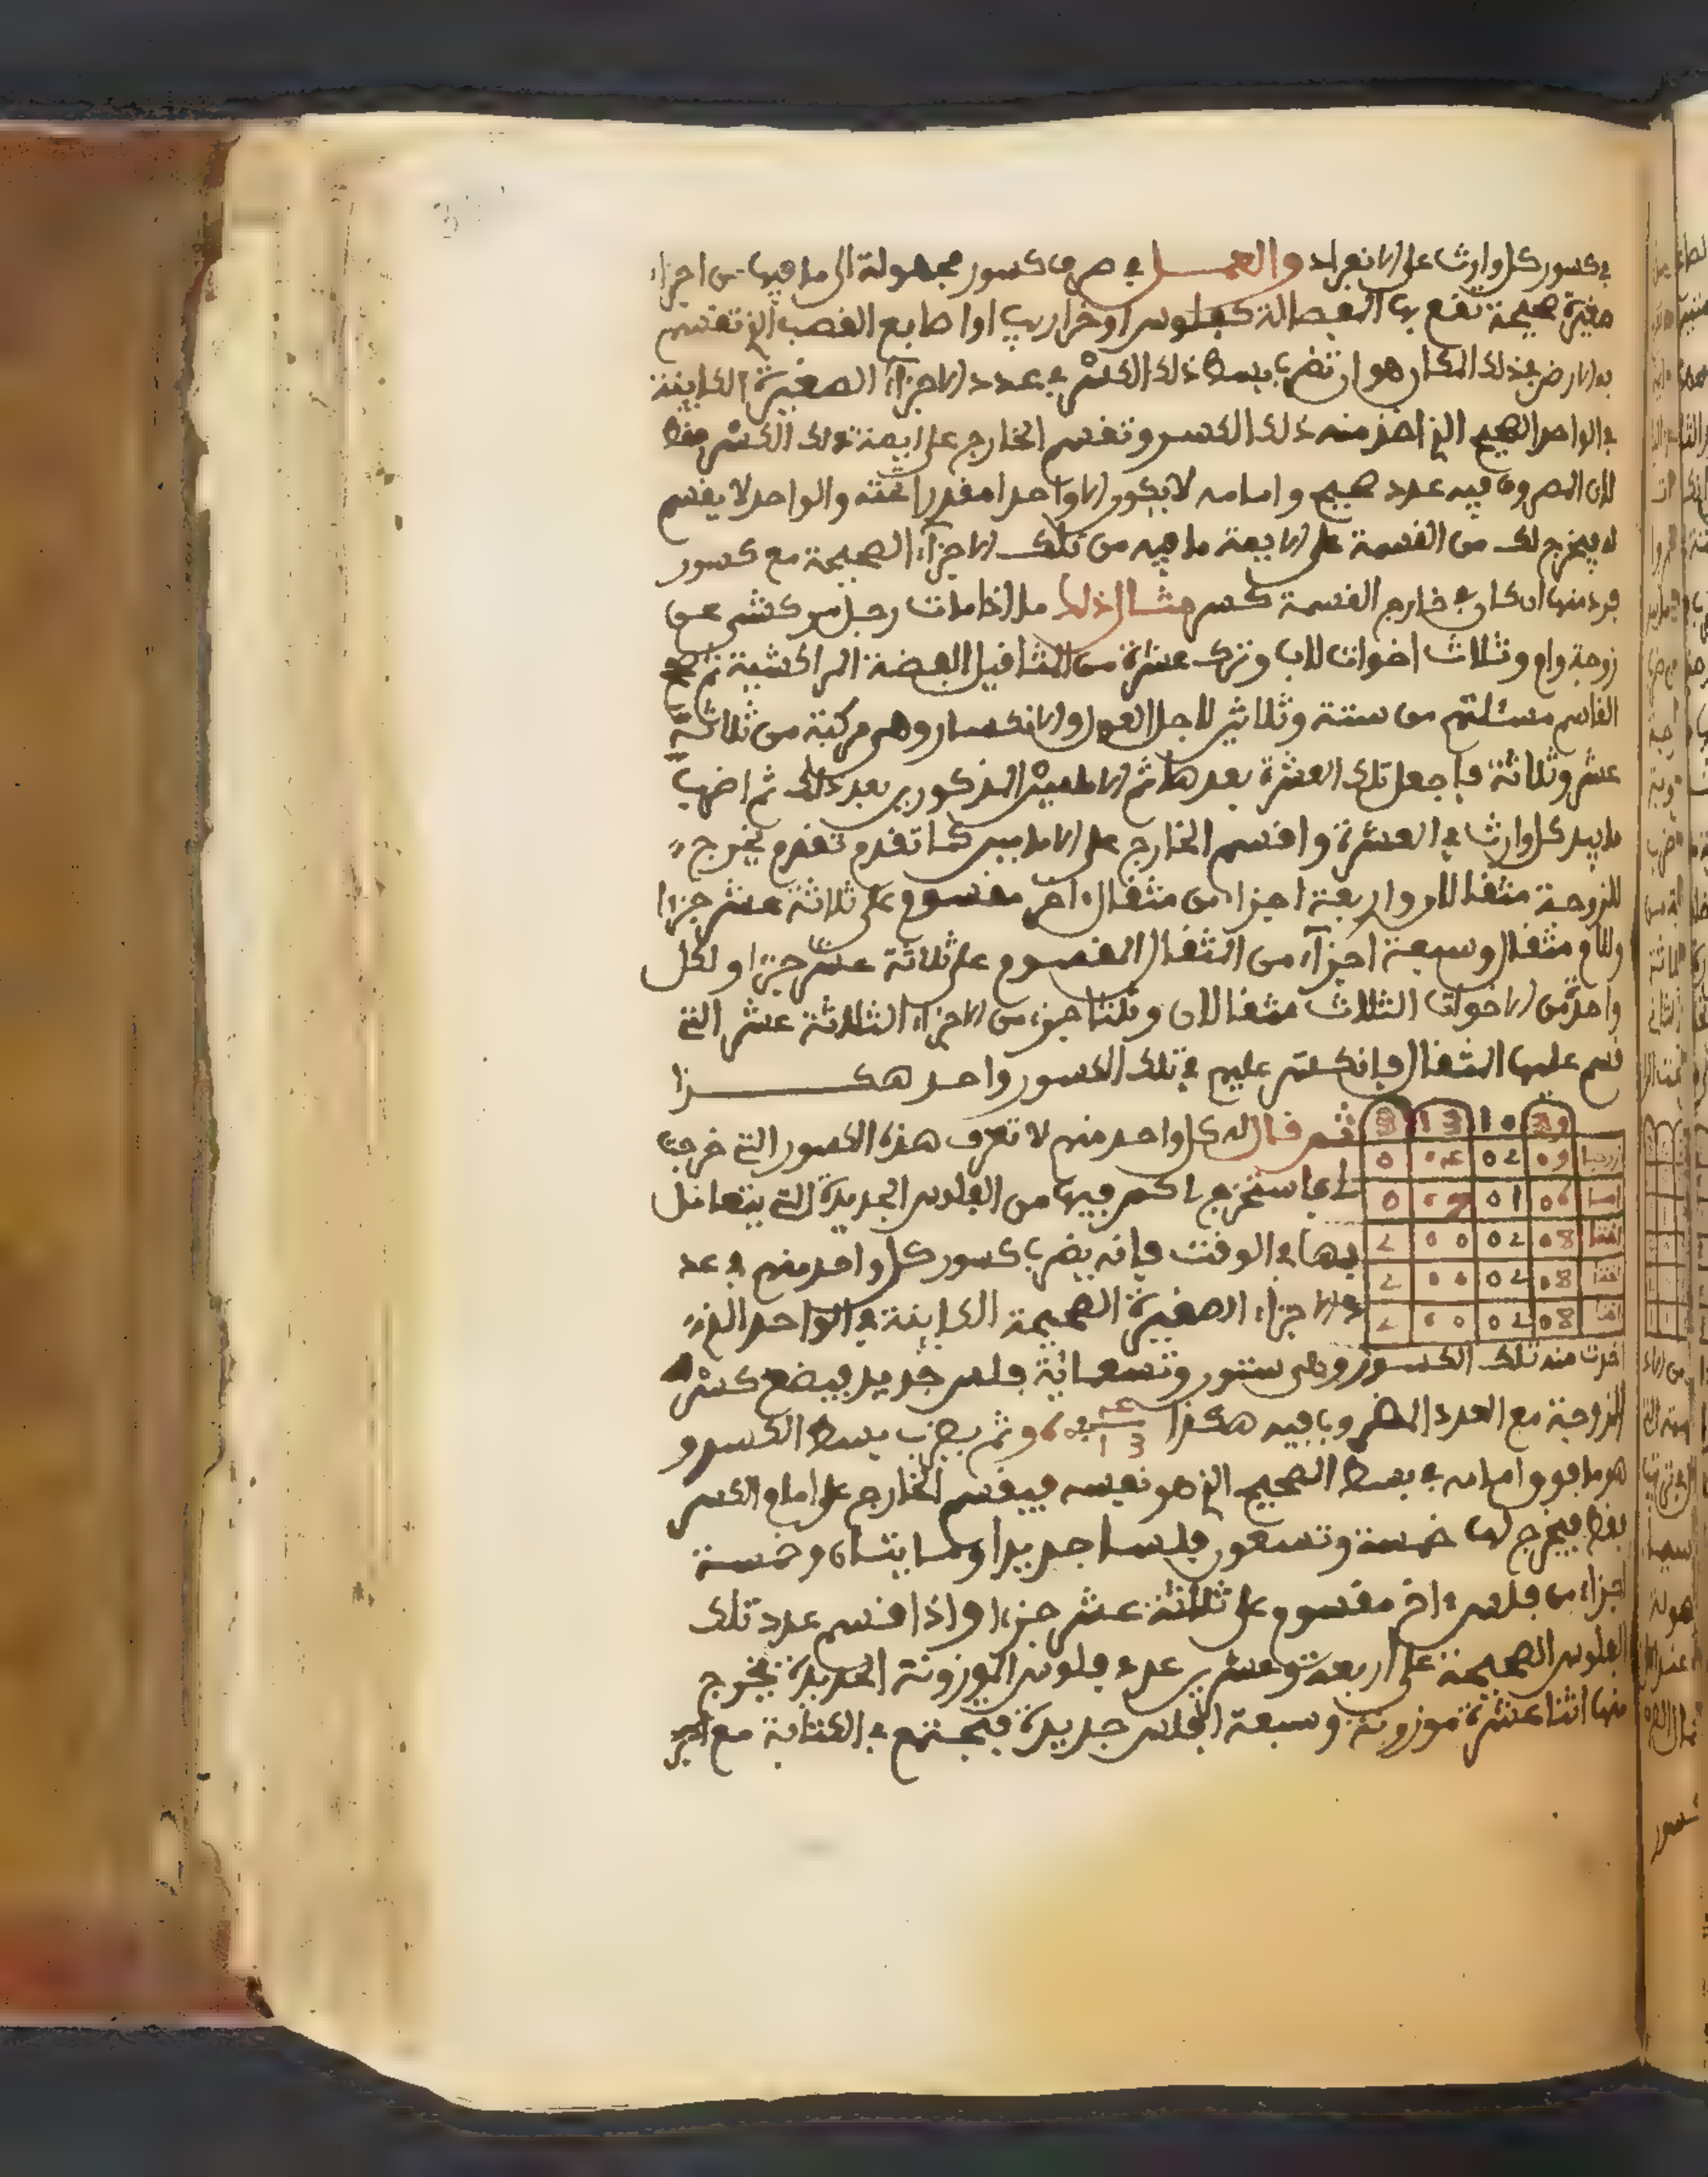 في كسور كل وارث على الانفراد والعمـــل في صرف كسور مجهولة الى ما فيها من اجزاء
صغيرة صحيحة تقع بها الفصالة كفلوس او خراريب او اصابع القصب الذي تقسم
به الارض فذلك المكان هو ان تضرب بسط ذلك الكسر في عدد الاجزاء الصغيرة الكاينة
في الواحد الصحيح الذي اخذ منه ذلك الكسر وتقسم الخارج على ايمة تلك الكسر فقط
لان المصروف فيه عدد صحيح وامامه لا يكون الا واحدا مقدرا تحته والواحد لا يقسم
له فيخرج لك من القسمة على الايمة ما فيه من تلك الاجزاء الصحيحة مع كسور
فرد منها ان كان في خارج القسمة كسر مثال ذلك ما اذا مات رجل مركشي عن
زوجة وام وثلاث اخوات للاب وترك عشرة من المثاقيل الفضة المراكشية
القاسم مسئلتهم من ستة وثلاثين لاجل العول والانكسار وهي مركبة من ثلاثة
عشر وثلاثة فاجعل تلك العشرة بعدها ثم الامامين المذكورين بعد ذلك ثم اضرب
ما بيد كل وارث في العشرة واقسم الخارج على الامامين كما تقدم تقدم يخرج
للزوجة مثقالان واربعة اجزاء من مثقال اخر مقسوم على ثلاثة عشر جزءا
وللام مثقال وسبعة اجزاء من المثقال المقسوم على ثلاثة عشر جزءا ولكل
واحدة من الاخوات الثلاث مثقالان وثلثا جزء من الاجزاء الثلاثة عشر التي
قسم عليها المثقال فانكسر عليهم في تلك الكسور واحد هكـــــذا
3 13 10 39
ثم قال له كل واحد منهم لا نعرف هذه الكسور التي خرجت
0 04 02 09 زوجة
0 07 01 06 ام
لنا فاستخرج لنا كم فيها من الفلوس الجديدة التي يتعامل
2 00 02 08 اخت
بها في الوقت فانه يضرب كسور كل واحد منهم في عد
2 00 02 08 اخت
د الاجزاء الصغيرة الصحيحة الكاينة في الواحد الذي
2 00 02 08 اخت
اخذت منه تلك الكسور وهي ستون وتسعمائة فلس جديد فيضع كسر
الزوجة مع العدد المضروب فيه هكذا 4 13 960 ثم يضرب بسط الكسر و
هو ما فوق امامه في بسط الصحيح الذي هو نفسه فيقسم الخارج على امام الكسر
فقط فيخرج لها خمسة وتسعون فلسا جديدا ومايتان وخمسة
اجزاء من فلس اخر مقسوم على ثلاثة عشر جزءا واذا قسم عدد تلك
الفلوس الصحيحة على اربعة وعشرين عدد فلوس الموزونة الجديدة يخرج
منها اثنا عشرة موزونة وسبعة افلس جديدة فيجتمع في الكتابة مع